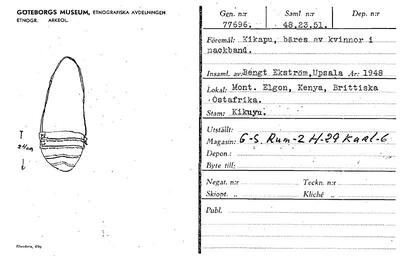 GÖTEBORGS MUSEUM, ETNOGRAFISKA AVDELNINGEN
ETNOGR. ARKEOL.
24 cm
Gen. n:r Saml. n:r Dep. n:r
77696. 48.23.51.
Föremål: Kikapu, bäres av kvinnor i
nackband.
Insaml. av: Bengt Ekström, Upsala År: 1948
Lokal: Mont. Elgon, Kenya, Brittiska
Östafrika.
Stam: Kikuyu.
Utställt:
Magasin: G-S. Rum-2 H-29 Kaal-6
Depon.:
Byte till:
Negat. n:r Teckn. n:r
Skiopt. „ Kliché „
Publ.